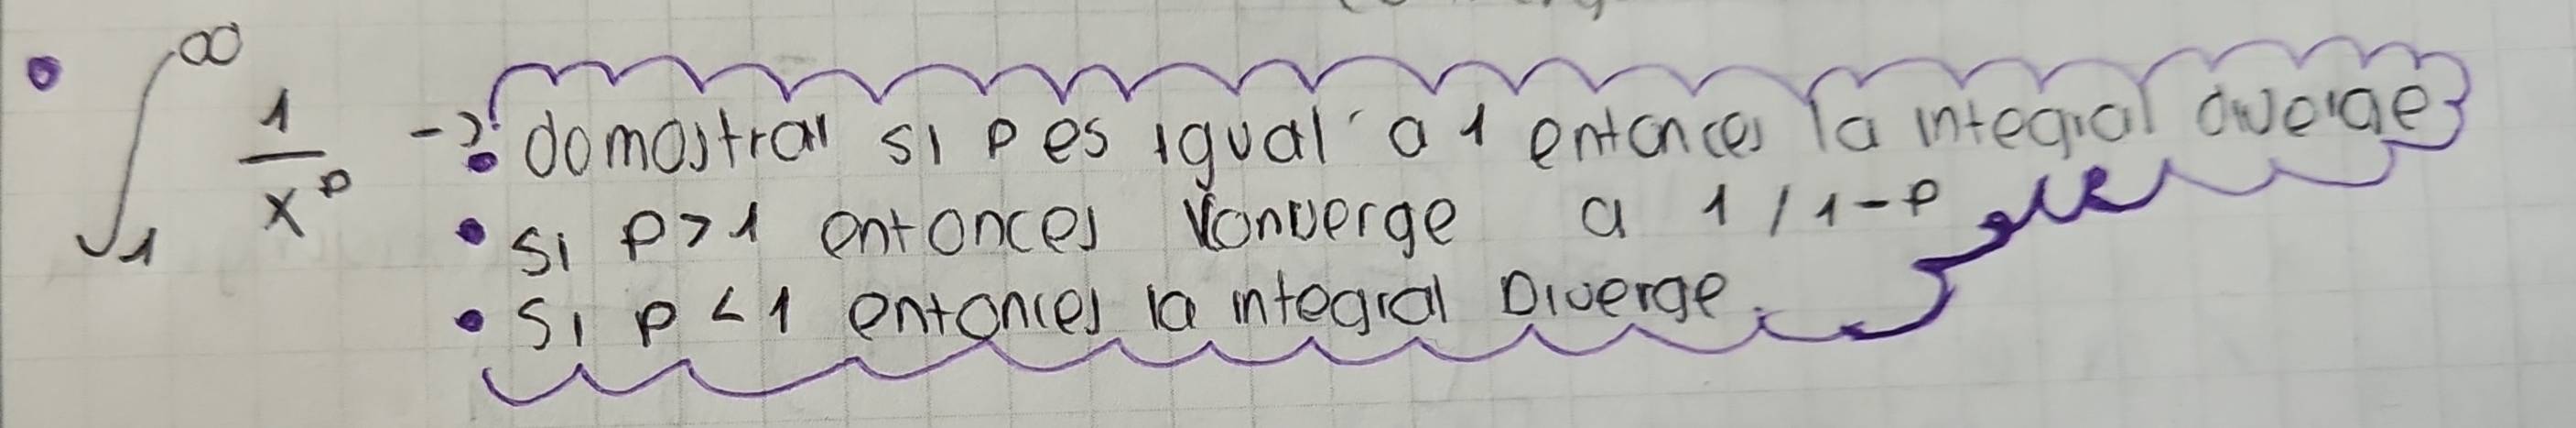 ∫₁^∞ 1/x^p -> • domostrar si p es igual a 1 entonces la integral diverge
• si p>1 entonces Konverge a 1/1-p
• Si p<1 entonces la integral Diverge.